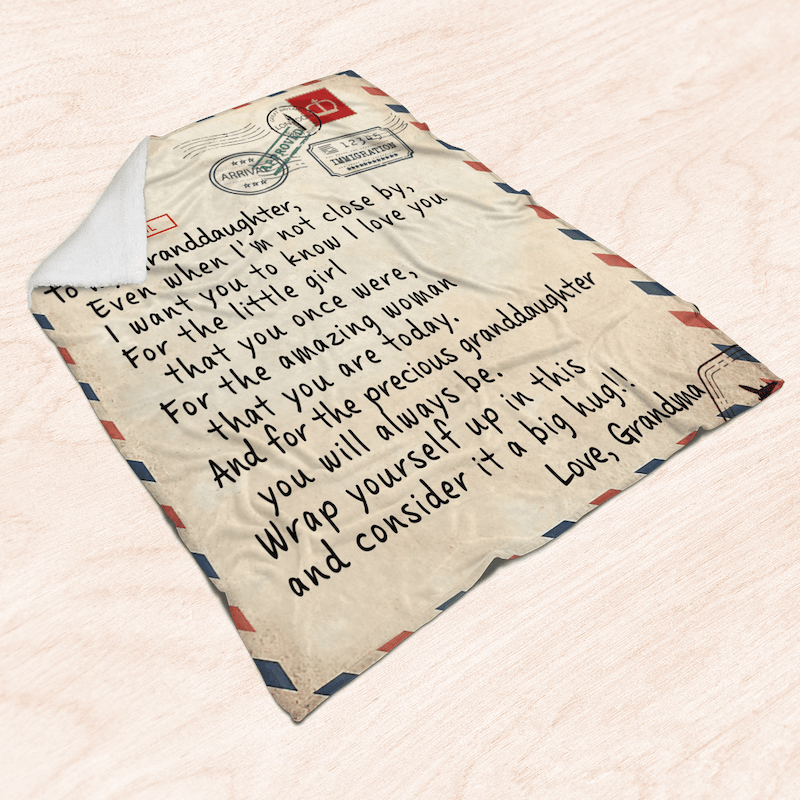 LONDON
APPROVED
ARRIVA
12345
IMMIGRATION
To granddaughter,
Even when I'm not close by,
I want you to know I love you
For the little girl
that you once were,
For the amazing woman
that you are today.
And for the precious granddaughter
you will always be.
Wrap yourself up in this
and consider it a big hug!!
Love, Grandma